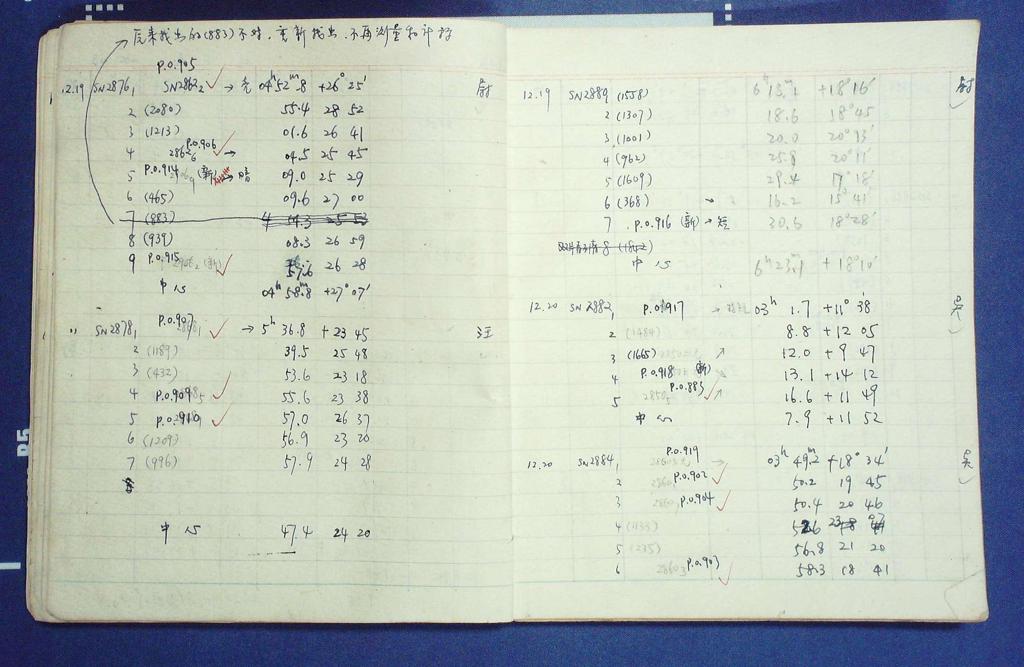 原来找出的(883)不对,重新找出,不再测量和计标
P.O.905
12.19 SN2876₁ SN2862₂ → 04ʰ52ᵐ.8 +26°25′
2 (2080) 55.4 28 52
3 (1213) 01.6 26 41
P.O.906
4 2862₆ → 04.5 25 45
P.O.914
5 (新) → 暗 09.0 25 29
6 (465) 09.6 27 00
7 (883) 25 53
8 (939) 08.3 26 59
P.O.915
9 (新) 57.6 26 28
中心 04ʰ58ᵐ.8 +27°07′
P.O.907
〃 SN2878₁ → 5ʰ36.8 +23 45 汪
2 (1189) 39.5 25 48
3 (432) 53.6 23 18
4 P.O.909 55.6 23 38
5 P.O.910 57.0 26 37
6 (1209) 56.9 23 20
7 (996) 57.9 24 28
中心 47.4 24 20
12.19 SN2889 (1558) 6ʰ15ᵐ.1 +18°16′
2 (1307) 18.6 18°45
3 (1001) 20.0 20°13′
4 (962) 25.8 20°11′
5 (1609) 29.4 17°18′
6 (368) → 16.2 15°41′
7 P.O.916 (新) → 短 30.6 18°28′
中心 6ʰ23ᵐ.1 +18°10′
12.20 SN2882₁ P.O.917 → 03ʰ 1.7 +11°38′ 吴
2 (1484) 8.8 +12 05
3 (1665) ↗ 12.0 +9 47
4 P.O.918 (新) 13.1 +14 12
P.O.883
5 2850₅ ↗ 16.6 +11 49
中心 7.9 +11 52
P.O.919
12.20 SN2884₁ → 03ʰ49ᵐ.2 +18°34′ 吴
2 P.O.902 50.2 19 45
3 P.O.904 50.4 20 46
4 (1133)
5 (235) 56.8 21 20
6 2860₃ P.O.903 58.3 18 41